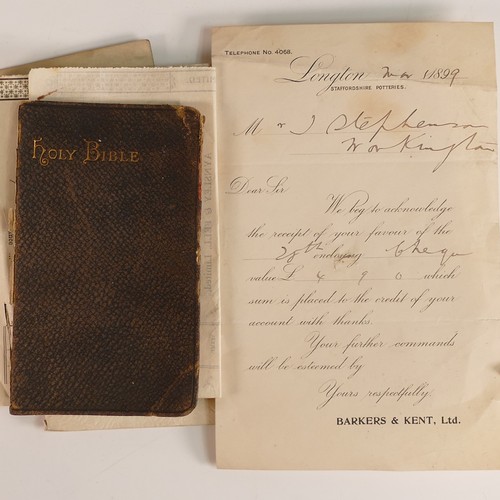 HOLY BIBLE
TELEPHONE No. 4068.
Longton Mar 1 1899
STAFFORDSHIRE POTTERIES.
Mr J Stephenson
Workington
Dear Sir
We beg to acknowledge
the receipt of your favour of the
28th enclosing Cheque
value £ 4 9 0 which
sum is placed to the credit of your
account with thanks.
Your further commands
will be esteemed by
Yours respectfully.
BARKERS & KENT, Ltd.